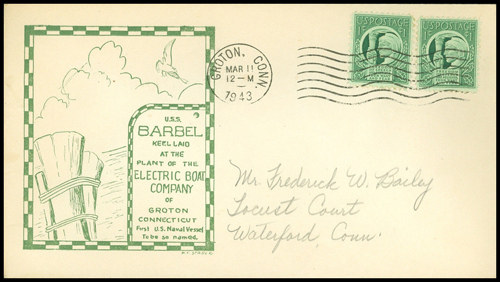 U.S.S.
BARBEL
KEEL LAID
AT THE
PLANT OF THE
ELECTRIC BOAT
COMPANY
OF
GROTON
CONNECTICUT
First U.S. Naval Vessel
to be so named.
GROTON, CONN.
MAR 11
12-M
1943
U.S. POSTAGE
U.S. POSTAGE
Mr. Frederick W. Bailey
Locust Court
Waterford, Conn.